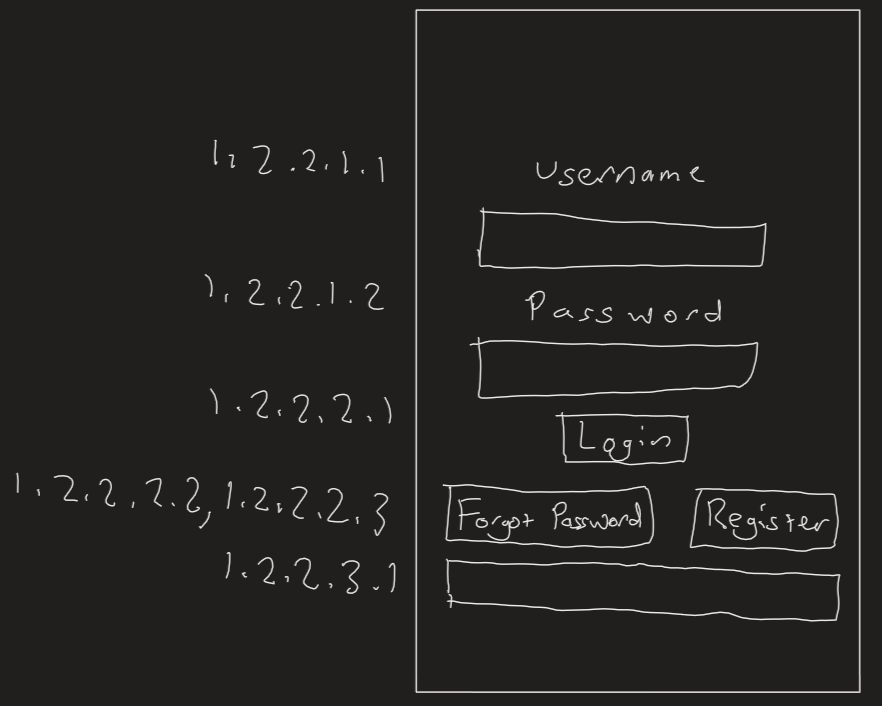 1.2.2.1.1 Username
1.2.2.1.2 Password
1.2.2.2.1 Login
1.2.2.2.2, 1.2.2.2.3 Forgot Password Register
1.2.2.3.1